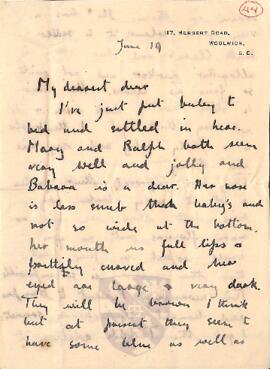 44
117, HERBERT ROAD,
WOOLWICH,
S. E.
June 19
My dearest dear
I've just put baby to
bed and settled in here.
Mary and Ralph both seem
very well and jolly and
Babara is a dear. Her nose
is less snub than baby's and
not so wide at the bottom.
her mouth is full lips &
prettily curved and her
eyes are large & very dark.
They will be brown I think
but at present they seem to
have some blue as well as